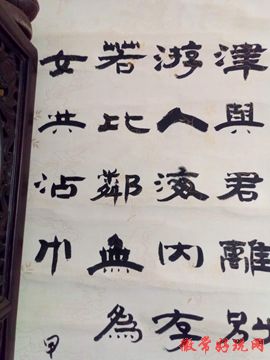 津與君離别
游人海内存
若比鄰無為
女共沾巾
甲